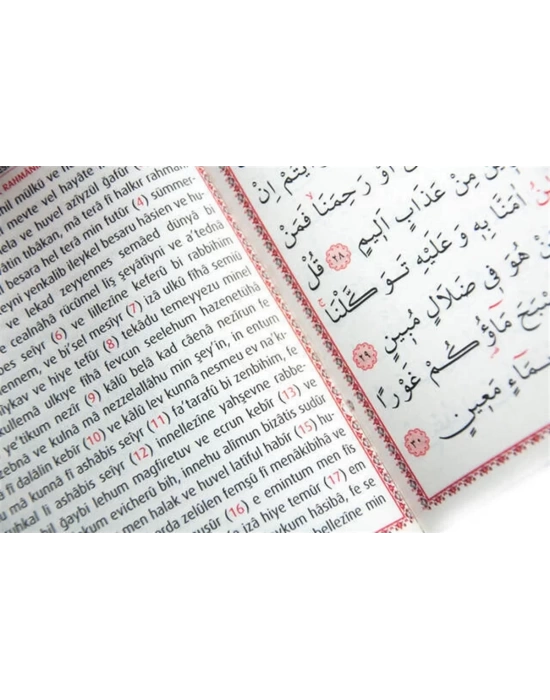 RAHMANİ
mil mülkü ve h
meyte vel hayate
ela ve huvel azîyzül gafûr (2)
vâtin tıbâkan, mâ terâ fî halkır rahman
l besara hel terâ min futûr (4) sümmer-
teyni yenkalib ileykel besaru hâsien ve hu-
ve lekad zeyyennes semâed dünyâ bi
e cealnâhâ rücûmel liş şeyâtiyni ve a'tednâ
bes seiyr (6) ve lillezîne keferû bi rabbihim
ennem, ve bi'sel mesîyr (7) izâ ulkû fîhâ semiû
hîykav ve hiye tefûr (8) tekâdu temeyyezu minel
küllemâ ulkıye fîhâ fevcun seelehum hazenetühâ
e'tikum nezîr (9) kâlû belâ kad câenâ nezîrun fe
zebnâ ve kulnâ mâ nezzelallâhu min şey'in, in entum
â fî dalâlin kebîr (10) ve kâlû lev kunnâ nesmeu ev na'kı-
mâ kunnâ fî ashâbis seiyr (11) fa'tarafû bi zenbihim, fe
uhkal li ashâbis seiyr (12) innellezîne yahşevne rabbe-
bil ğaybi lehum mağfiretuv ve ecrun kebîr (13) ve
kum evicherû bih, innehu alîmun bizâtis sudûr
men halak ve huvel latîful habîr (15) hu-
arda zelûlen femşû fî menâkibihâ ve
nuşûr (16) e emintum men fis
e izâ hiye temûr (17) em
aykum hâsibâ, fe se
bellezîne min
اَوْ رَحِمَنَا فَمَنْ
مِنْ عَذَابٍ اَلٖيمٍ ٢٨ قُلْ
اٰمَنَّا بِهٖ وَعَلَيْهِ تَوَكَّلْنَا
هُوَ فٖي ضَلَالٍ مُبٖينٍ ٢٩
مَٓاؤُ۬كُمْ غَوْرًا
مَعٖينٍ ٣٠